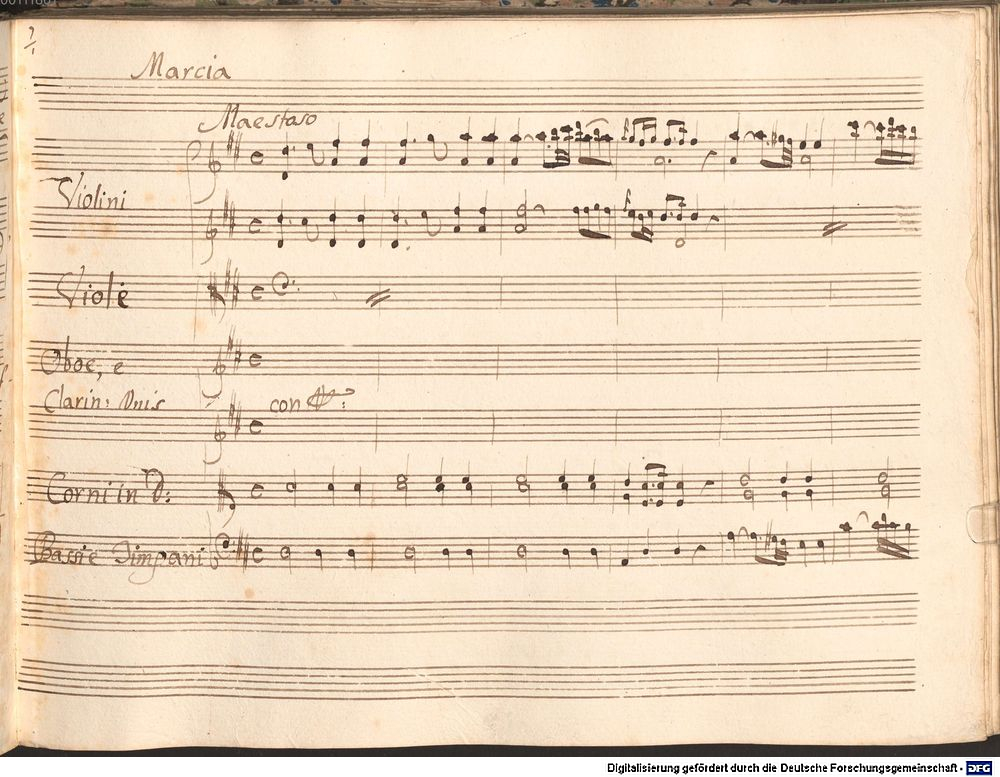 Marcia
Maestoso
Violini
Viole
Oboe, e
Clarin: Unis
con
Corni in D:
Bassi e Timpani
Digitalisierung gefördert durch die Deutsche Forschungsgemeinschaft - DFG